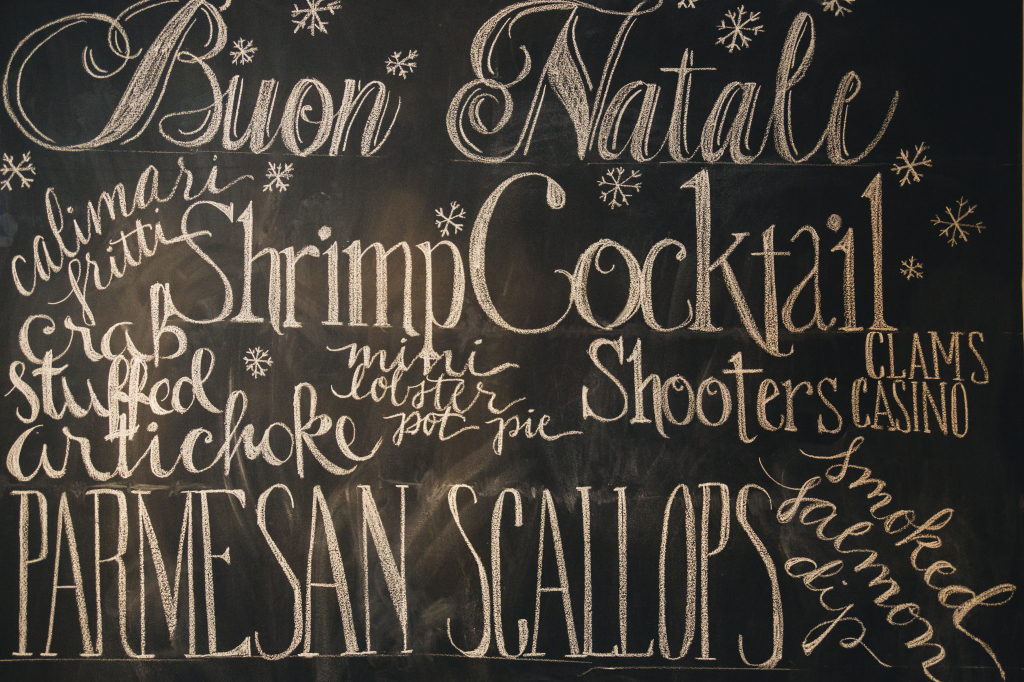 Buon Natale
calimari
fritti
Shrimp Cocktail
crab
stuffed
artichoke
mini
lobster
pot pie
Shooters
CLAMS
CASINO
PARMESAN SCALLOPS
smoked
salmon
dip